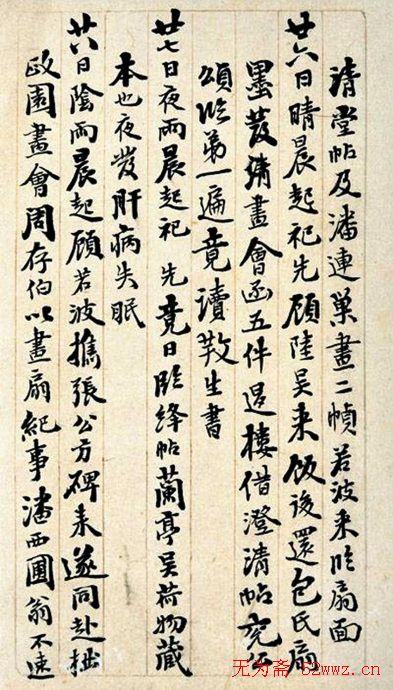 清堂帖及潘連巢畫二幀若波来临扇面
廿六日晴晨起祀先顧陸吴来飯後還包氏扇
墨發請畫會函五件過樓借澄清帖
頌临弟一遍竟讀敩生書
廿七日夜雨晨起祀先竟日临绛帖蘭亭吴荷物藏
本也夜發肝病失眠
廿八日陰雨晨起顧若波攜張公方碑来遂同赴拙
政園畫會周存伯以畫扇紀事潘西圃翁不速
无为斋·52wwz.cn